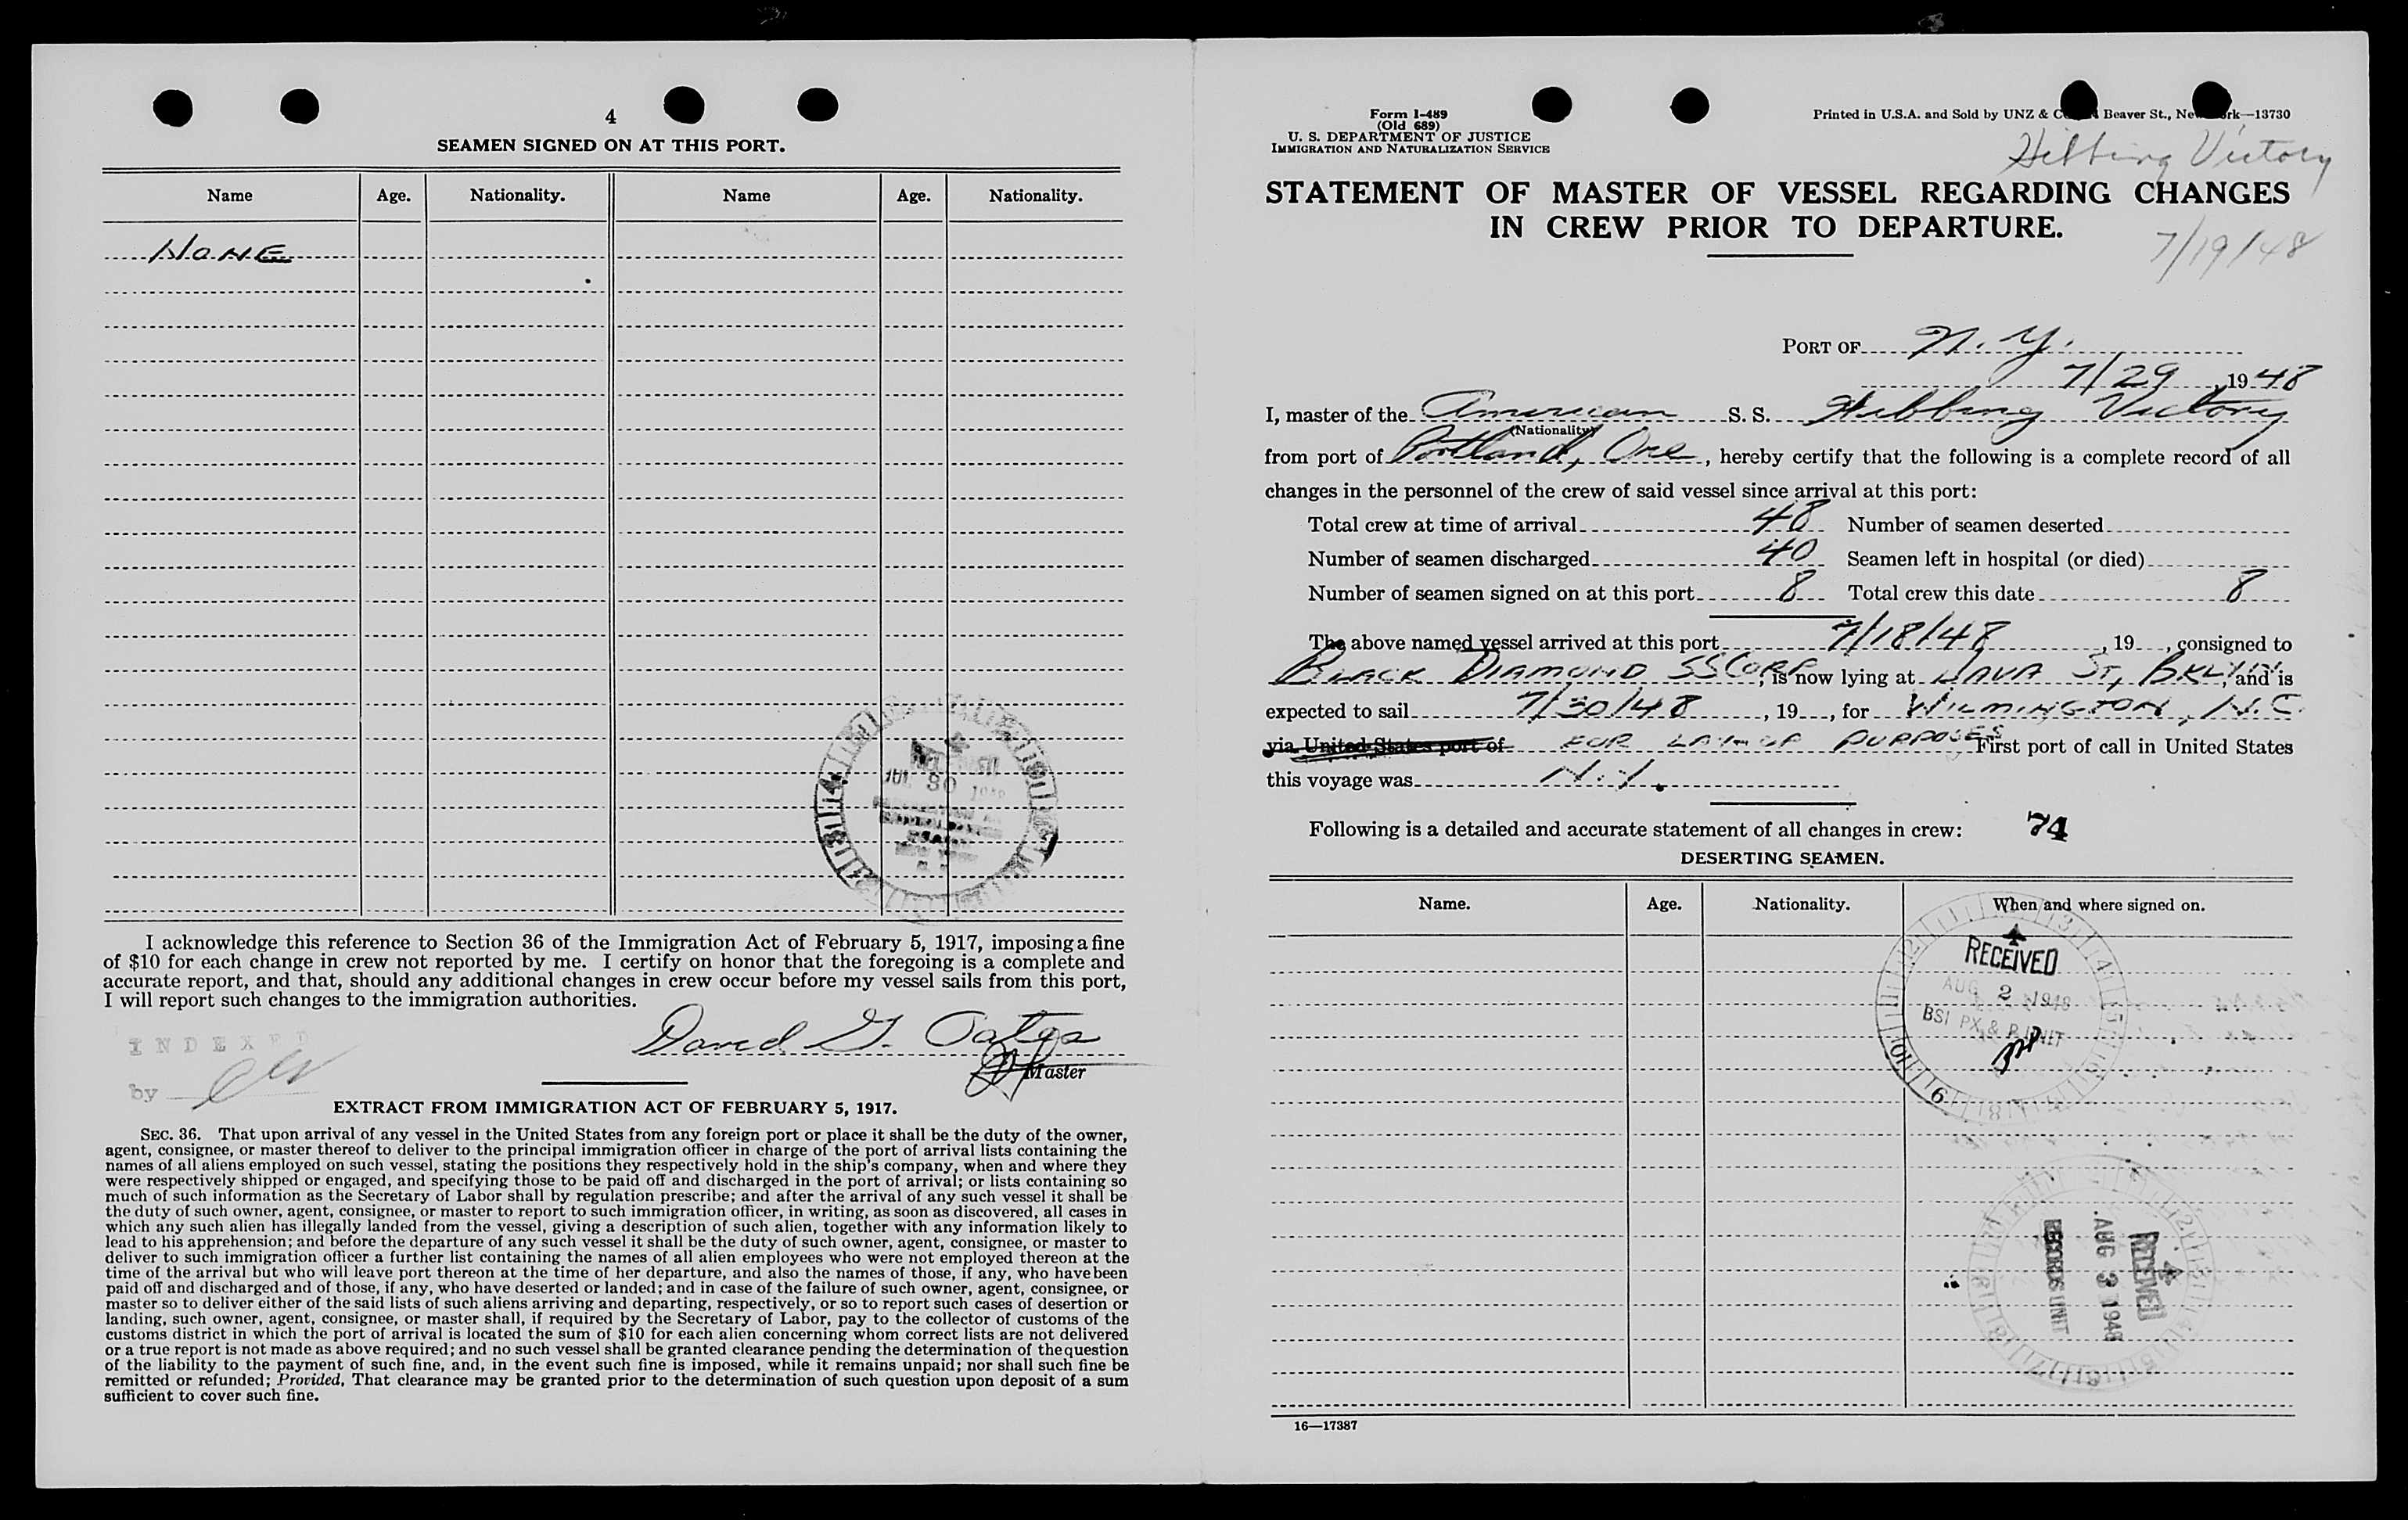 4
SEAMEN SIGNED ON AT THIS PORT.
Name Age. Nationality. Name Age. Nationality.
NONE
JUL 30
I acknowledge this reference to Section 36 of the Immigration Act of February 5, 1917, imposing a fine
of $10 for each change in crew not reported by me. I certify on honor that the foregoing is a complete and
accurate report, and that, should any additional changes in crew occur before my vessel sails from this port,
I will report such changes to the immigration authorities.
David G. Oates
Master
INDEXED
by
EXTRACT FROM IMMIGRATION ACT OF FEBRUARY 5, 1917.
SEC. 36. That upon arrival of any vessel in the United States from any foreign port or place it shall be the duty of the owner,
agent, consignee, or master thereof to deliver to the principal immigration officer in charge of the port of arrival lists containing the
names of all aliens employed on such vessel, stating the positions they respectively hold in the ship's company, when and where they
were respectively shipped or engaged, and specifying those to be paid off and discharged in the port of arrival; or lists containing so
much of such information as the Secretary of Labor shall by regulation prescribe; and after the arrival of any such vessel it shall be
the duty of such owner, agent, consignee, or master to report to such immigration officer, in writing, as soon as discovered, all cases in
which any such alien has illegally landed from the vessel, giving a description of such alien, together with any information likely to
lead to his apprehension; and before the departure of any such vessel it shall be the duty of such owner, agent, consignee, or master to
deliver to such immigration officer a further list containing the names of all alien employees who were not employed thereon at the
time of the arrival but who will leave port thereon at the time of her departure, and also the names of those, if any, who have been
paid off and discharged and of those, if any, who have deserted or landed; and in case of the failure of such owner, agent, consignee, or
master so to deliver either of the said lists of such aliens arriving and departing, respectively, or so to report such cases of desertion or
landing, such owner, agent, consignee, or master shall, if required by the Secretary of Labor, pay to the collector of customs of the
customs district in which the port of arrival is located the sum of $10 for each alien concerning whom correct lists are not delivered
or a true report is not made as above required; and no such vessel shall be granted clearance pending the determination of the question
of the liability to the payment of such fine, and, in the event such fine is imposed, while it remains unpaid; nor shall such fine be
remitted or refunded; Provided, That clearance may be granted prior to the determination of such question upon deposit of a sum
sufficient to cover such fine.
Form I-489
(Old 689)
U. S. DEPARTMENT OF JUSTICE
IMMIGRATION AND NATURALIZATION SERVICE
Printed in U.S.A. and Sold by UNZ & Beaver St., —13730
Hibbing Victory
STATEMENT OF MASTER OF VESSEL REGARDING CHANGES
IN CREW PRIOR TO DEPARTURE.
7/19/48
PORT OF N. Y.
7/29, 1948
I, master of the American S. S. Hibbing Victory
(Nationality)
from port of Portland, Ore, hereby certify that the following is a complete record of all
changes in the personnel of the crew of said vessel since arrival at this port:
Total crew at time of arrival 48 Number of seamen deserted
Number of seamen discharged 40 Seamen left in hospital (or died)
Number of seamen signed on at this port 8 Total crew this date 8
The above named vessel arrived at this port 7/18/48, 19 , consigned to
BLACK DIAMOND SS CORP, is now lying at JAVA ST, BKLYN, and is
expected to sail 7/30/48, 19 , for WILMINGTON, N.C.
via United States port of FOR LAY-UP PURPOSES First port of call in United States
this voyage was N.Y.
Following is a detailed and accurate statement of all changes in crew: 74
DESERTING SEAMEN.
Name. Age. Nationality. When and where signed on.
RECEIVED
AUG 2 1948
BSI PX & B UNIT
RECEIVED
AUG 3 1948
RECORDS UNIT
16—17387